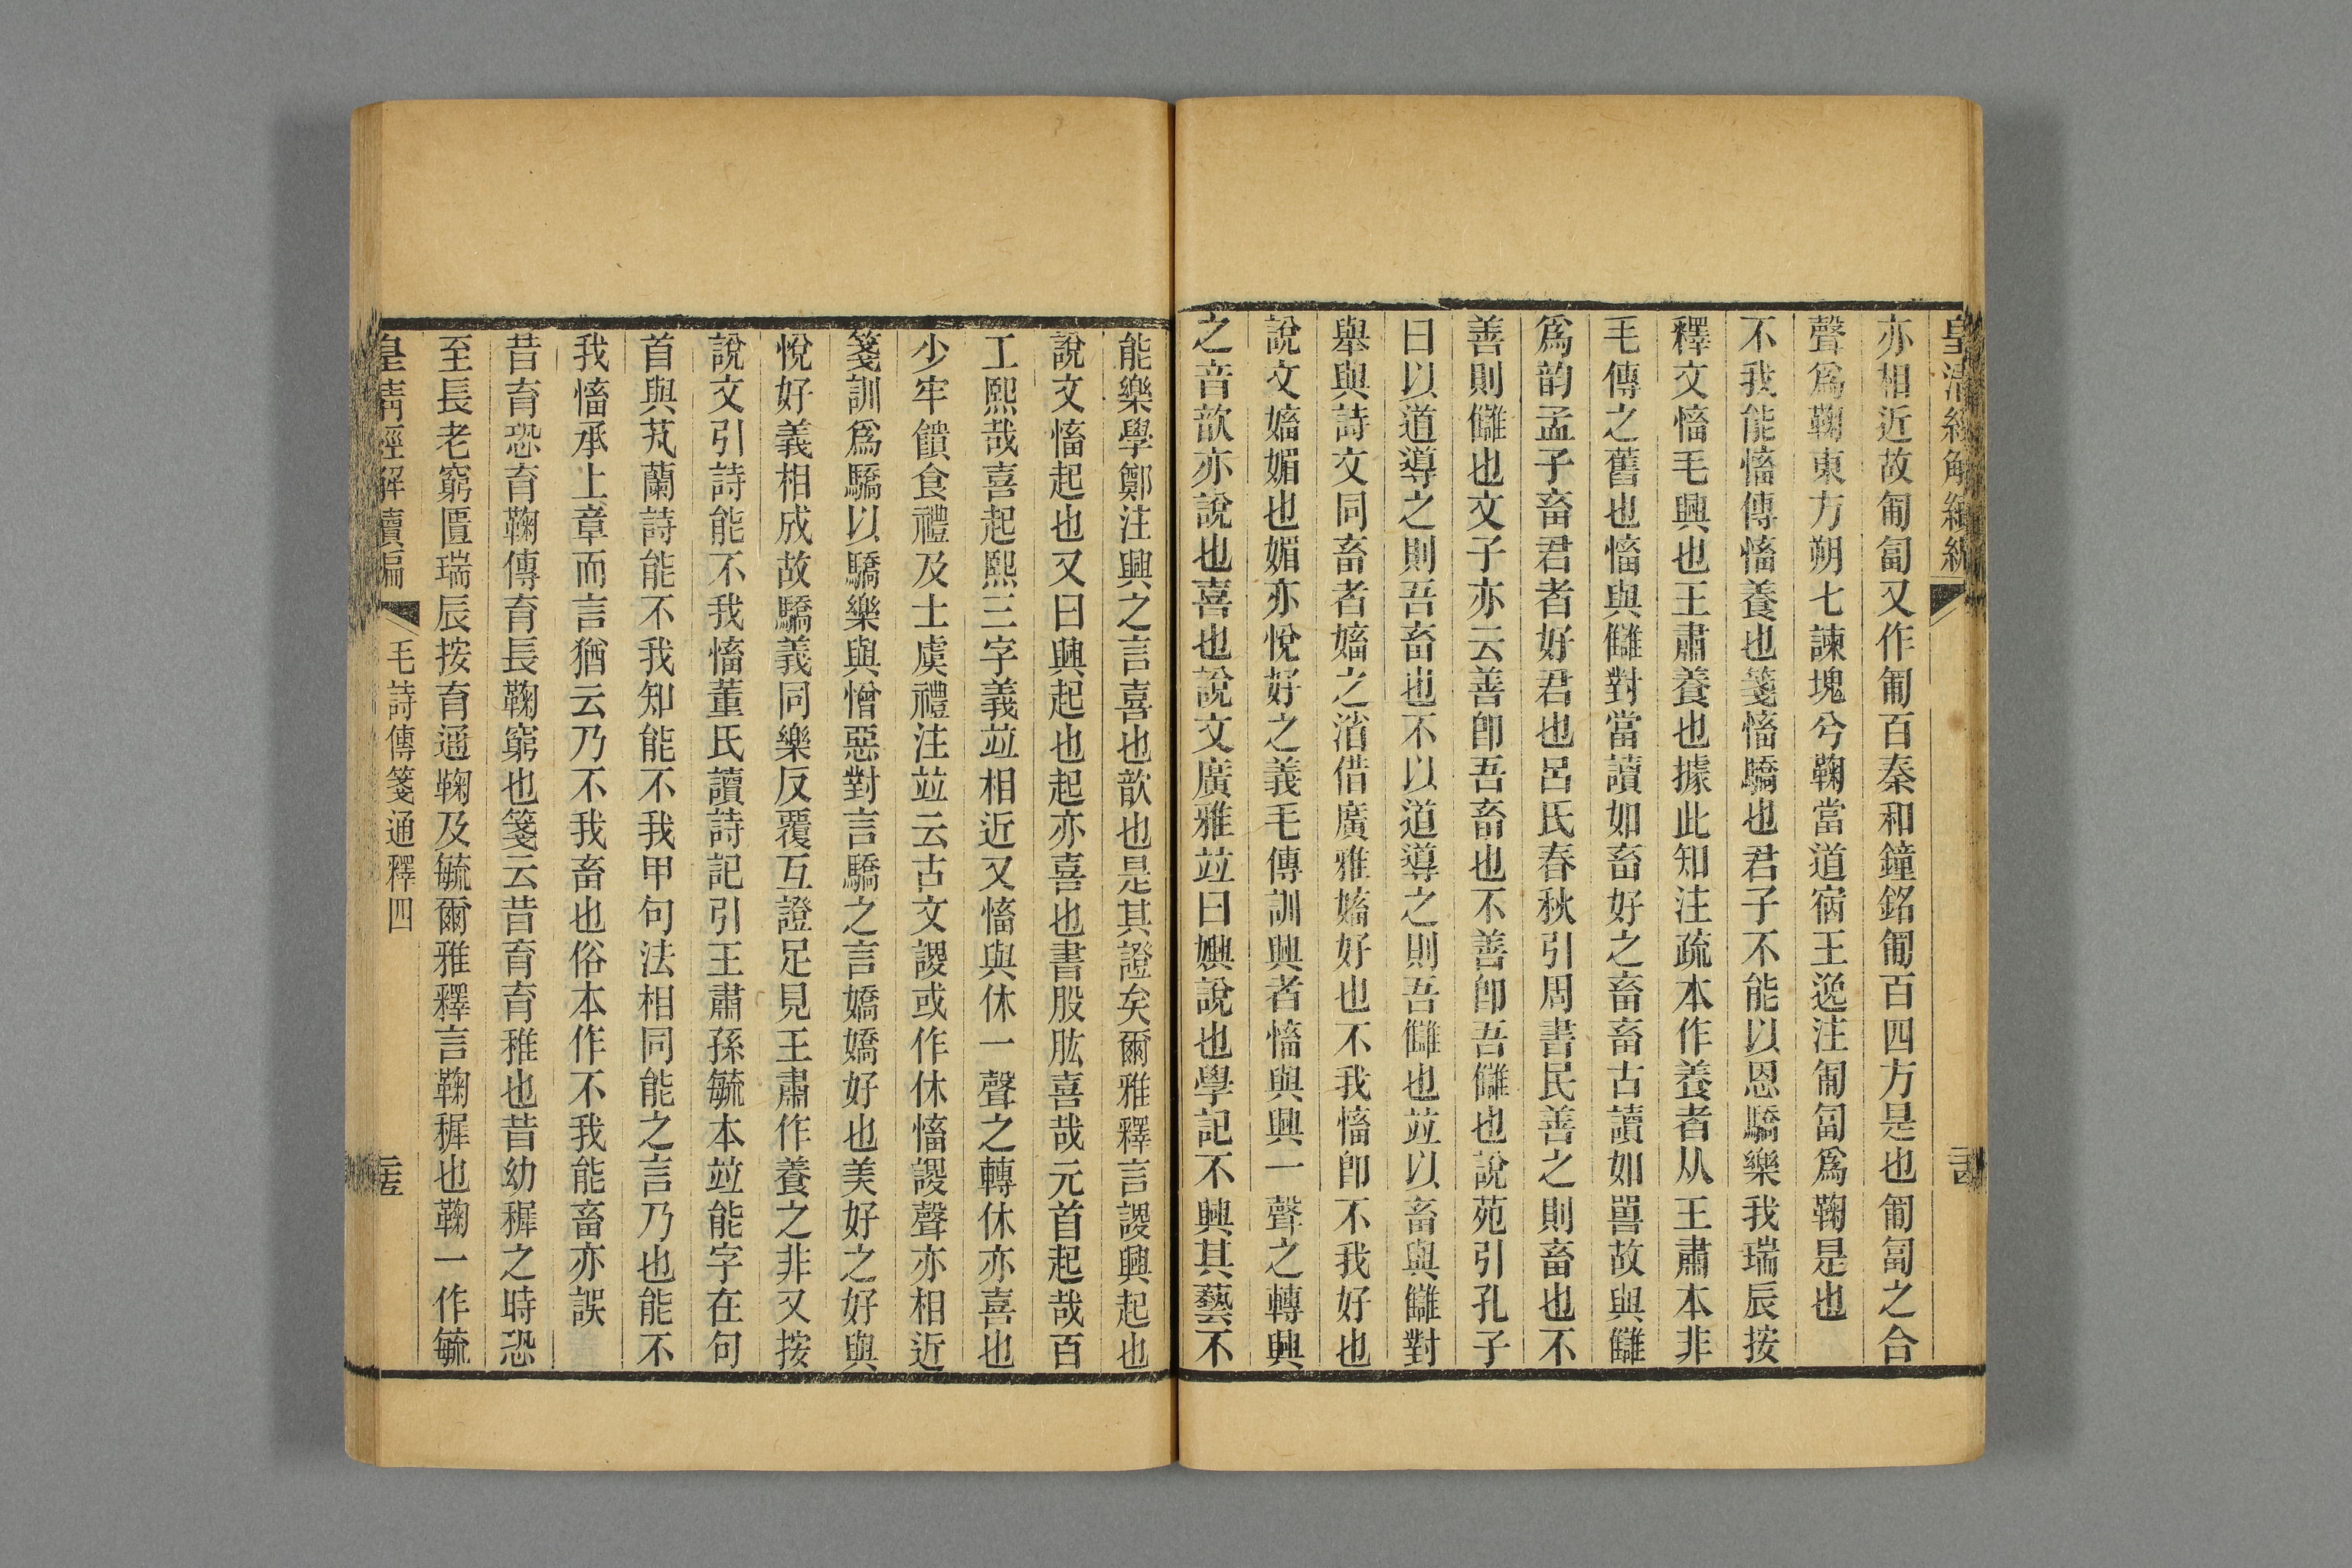 皇清經解續編
亦相近故匍匐又作匍百秦和鐘銘匍百四方是也匍匐之合
聲爲鞠東方朔七諫塊兮鞠當道宿王逸注匍匐爲鞠是也
不我能慉傳慉養也箋慉驕也君子不能以恩驕樂我瑞辰按
釋文慉毛興也王肅養也據此知注疏本作養者从王肅本非
毛傳之舊也慉與讎對當讀如畜好之畜畜古讀如嘼故與讎
爲韵孟子畜君者好君也呂氏春秋引周書民善之則畜也不
善則讎也文子亦云善卽吾畜也不善卽吾讎也說苑引孔子
曰以道導之則吾畜也不以道導之則吾讎也竝以畜與讎對
舉與詩文同畜者嬌之渻借廣雅嬌好也不我慉卽不我好也
說文嬌媚也媚亦悅好之義毛傳訓興者慉與興一聲之轉興
之音歆亦說也喜也說文廣雅竝曰嬹說也學記不興其藝不
能樂學鄭注興之言喜也歆也是其證矣爾雅釋言謖興起也
說文慉起也又曰興起也起亦喜也書股肱喜哉元首起哉百
工熙哉喜起熙三字義竝相近又慉與休一聲之轉休亦喜也
少牢饋食禮及士虞禮注竝云古文謖或作休慉謖聲亦相近
箋訓爲驕以驕樂與憎惡對言驕之言嬌嬌好也美好之好與
悅好義相成故驕義同樂反覆互證足見王肅作養之非又按
說文引詩能不我慉董氏讀詩記引王肅孫毓本竝能字在句
首與芄蘭詩能不我知能不我甲句法相同能之言乃也能不
我慉承上章而言猶云乃不我畜也俗本作不我能畜亦誤
昔育恐育鞠傳育長鞠窮也箋云昔育育稚也昔幼稺之時恐
至長老窮匱瑞辰按育通鞠及毓爾雅釋言鞠稺也鞠一作毓
皇清經解續編 毛詩傳箋通釋四